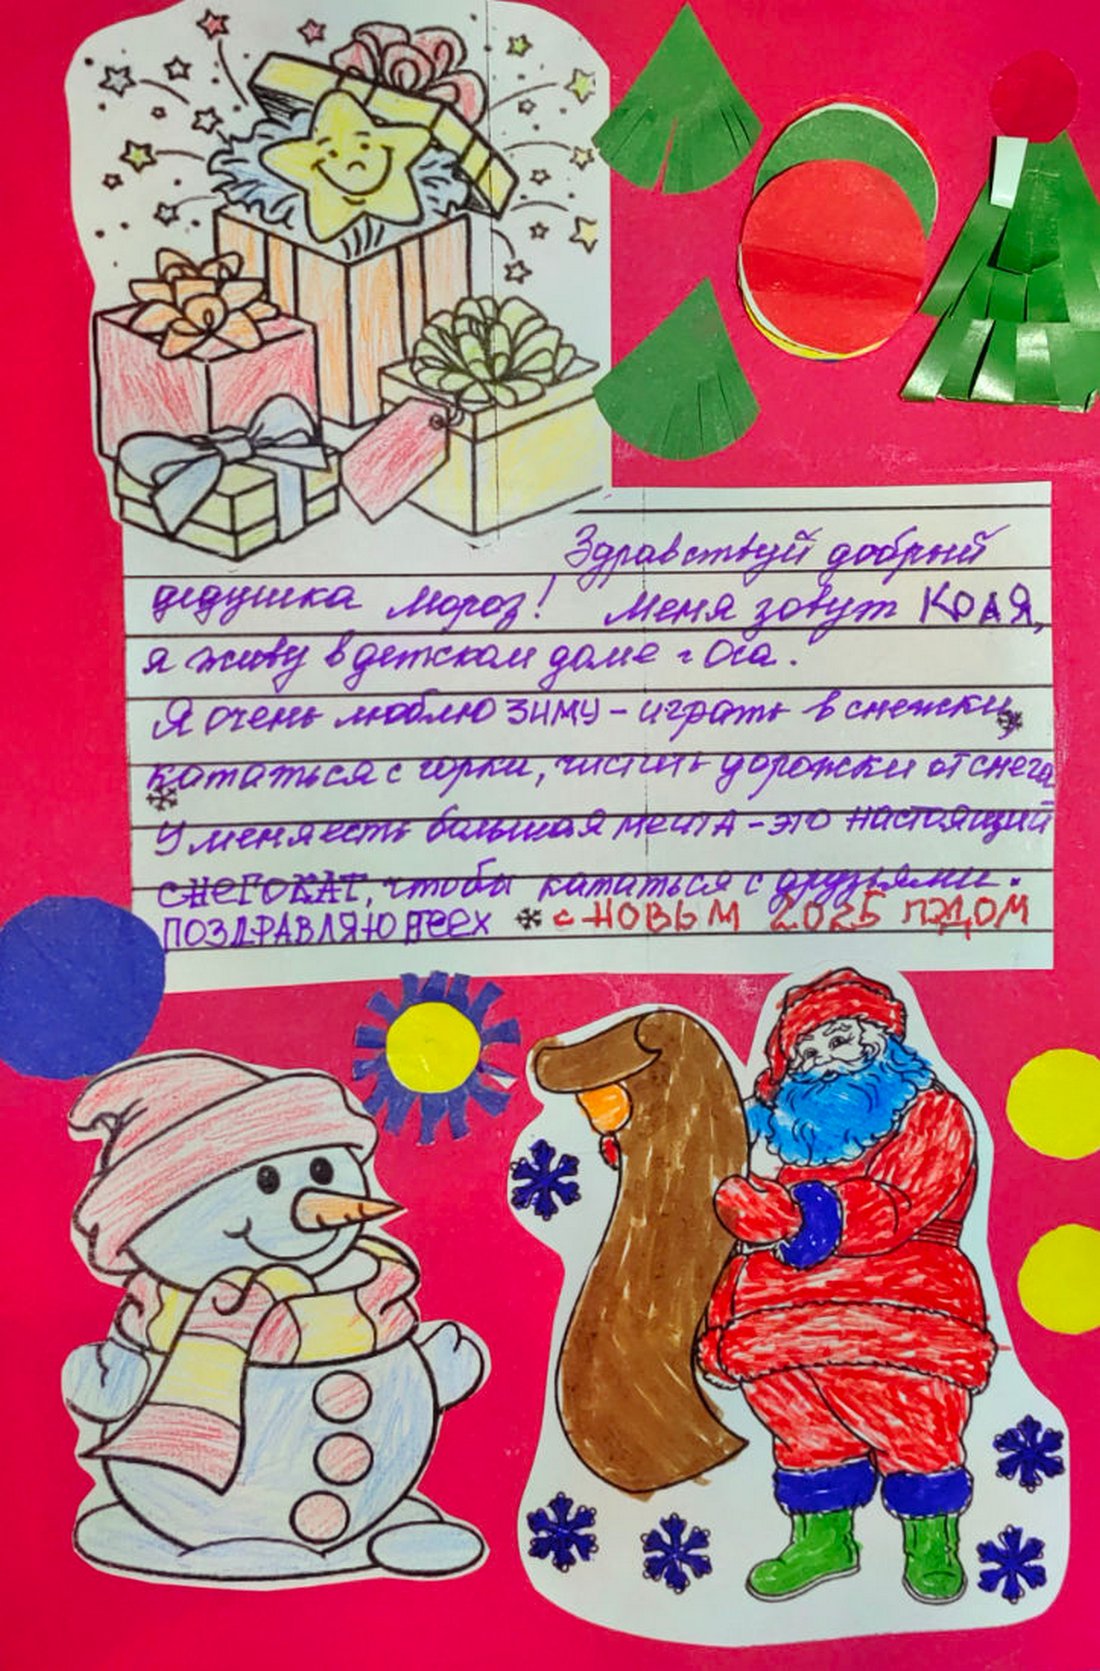 Здравствуй добрый
дедушка Мороз! Меня зовут КОАЯ,
я живу в детском доме г Оса.
Я очень люблю ЗИМУ - играть в снежки,
кататься с горки, чистить дорожки от снега
У меня есть большая мечтА - это НАСТОЯщий
СНЕГОКАТ, чтобы кататься с друзьями.
ПОЗДРАВЛЯЮ ВСЕХ с НОВЫМ 2025 ГОДОМ